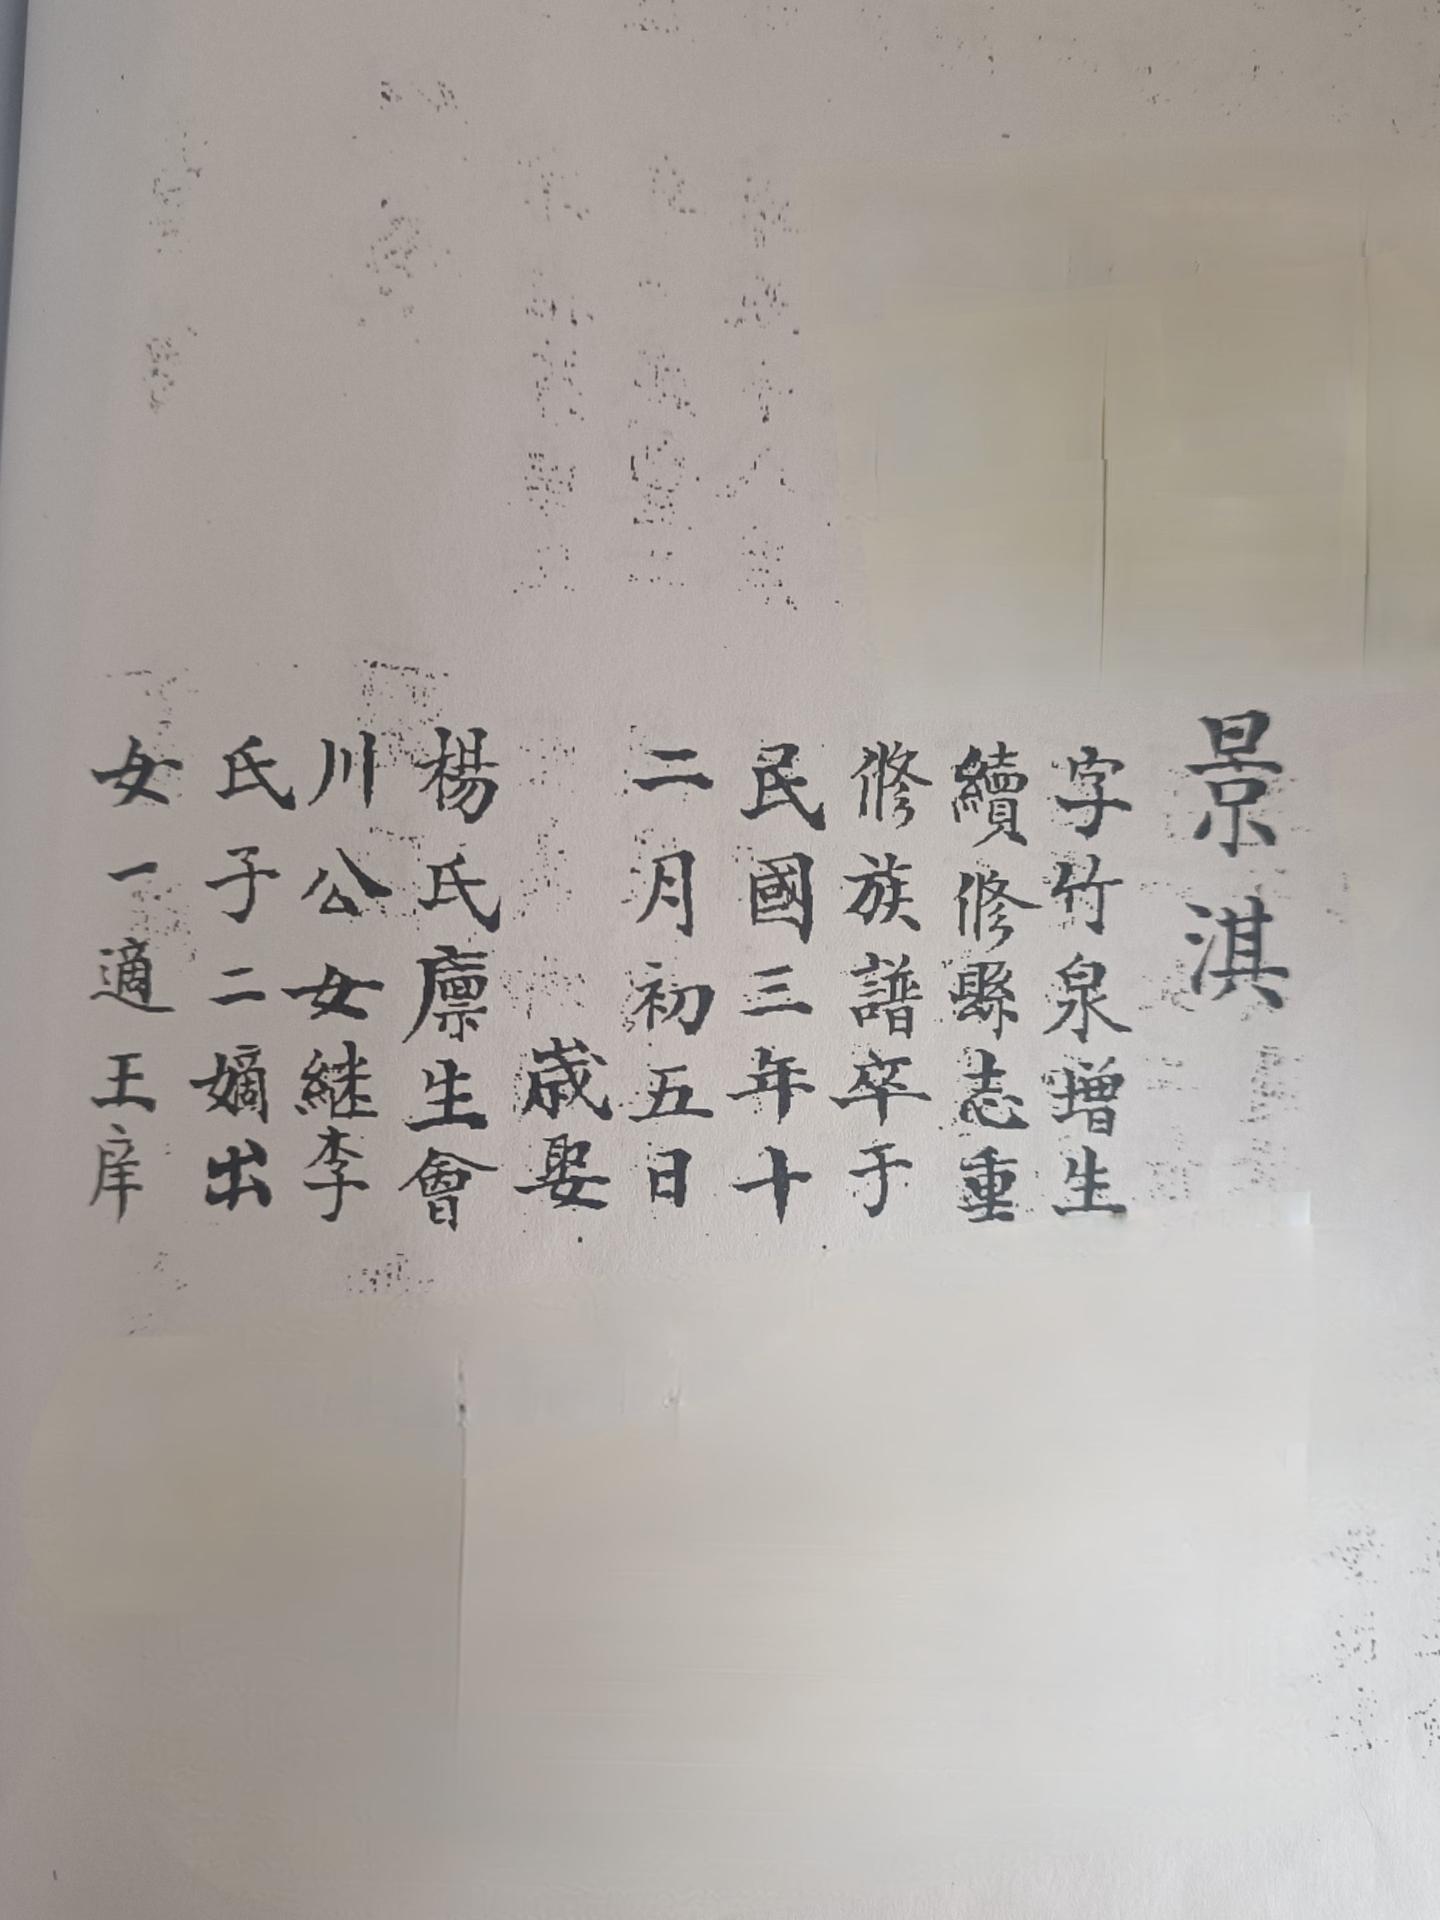 景淇
字竹泉增生
續修縣志重
修族譜卒于
民國三年十
二月初五日
歲娶
楊氏廩生會
川公女継李
氏子二嫡出
女一適王庠